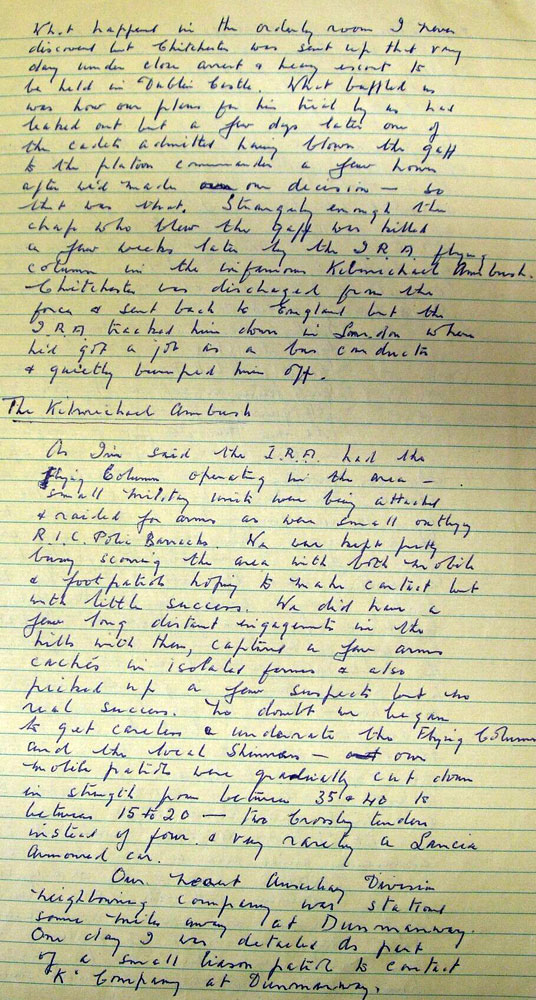 What happened in the orderly room I never
discovered but Chichester was sent up that very
day under close arrest & heavy escort to
be held in Dublin Castle. What baffled us
was how our plans for his trial by us had
leaked out but a few days later one of
the cadets admitted having blown the gaff
to the platoon commander a few hours
after we'd made our decision — so
that was that. Strangely enough the
chap who blew the gaff was killed
a few weeks later by the I.R.A. flying
column in the infamous Kilmichael Ambush.
Chichester was discharged from the
force & sent back to England but the
I.R.A tracked him down in London where
he'd got a job as a bus conductor
& quietly bumped him off.
The Kilmichael Ambush
As I've said the I.R.A. had the
Flying Column operating in the area —
small military units were being attacked
& raided for arms as were small outlying
R.I.C. Police Barracks. We were kept pretty
busy scouring the area with both mobile
& foot patrols hoping to make contact but
with little success. We did have a
few long distant engagements in the
hills with them, captured a few arms
cachés in isolated farms & also
picked up a few suspects but no
real success. No doubt we began
to get careless & underrate the Flying Column
and the local Shinners — our
mobile patrols were gradually cut down
in strength from between 35 & 40 to
between 15 to 20 — two Crossley tenders
instead of four & very rarely a Lancia
Armoured car.
Our nearest Auxiliary Division
neighbouring company was stationed
some miles away at Dunmanway.
One day I was detailed as part
of a small liason patrol to contact
"K" Company at Dunmanway.